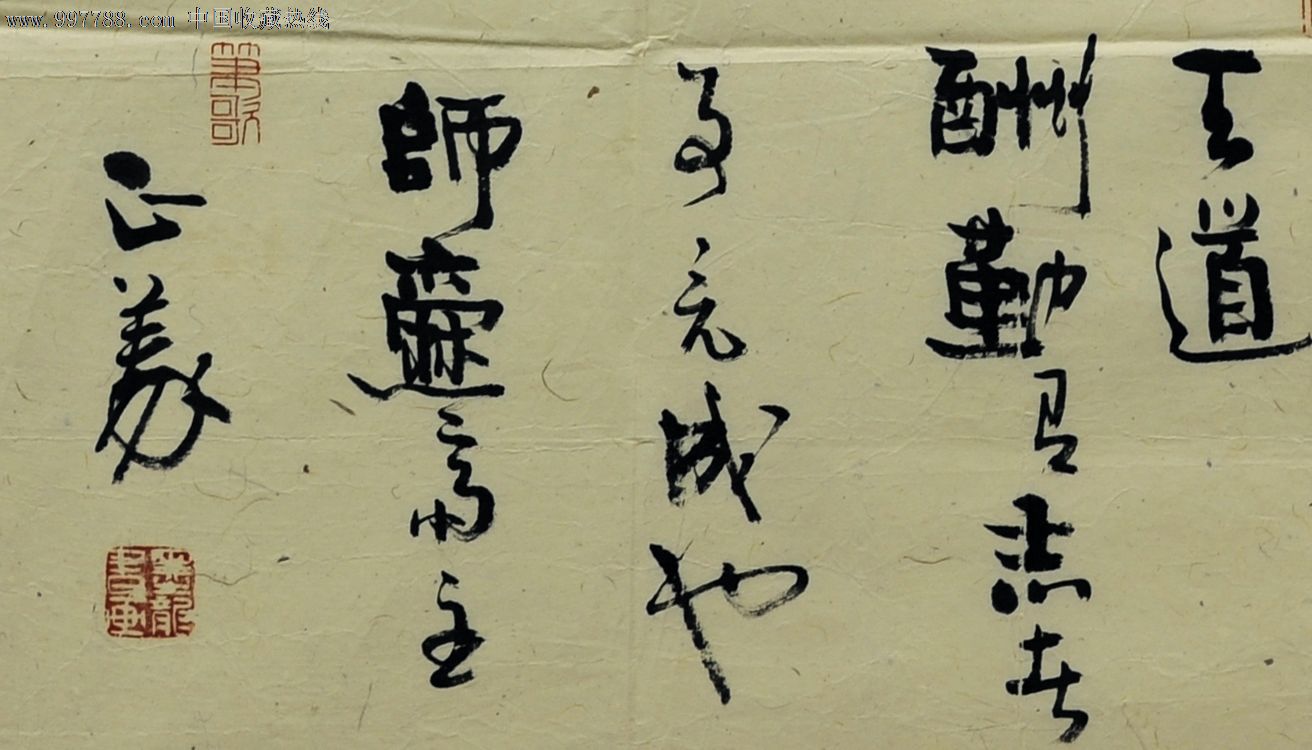 www.997788.com 中国收藏热线
天道
酬勤有志者
事竟成也
師邇齋主
筆歌
正義